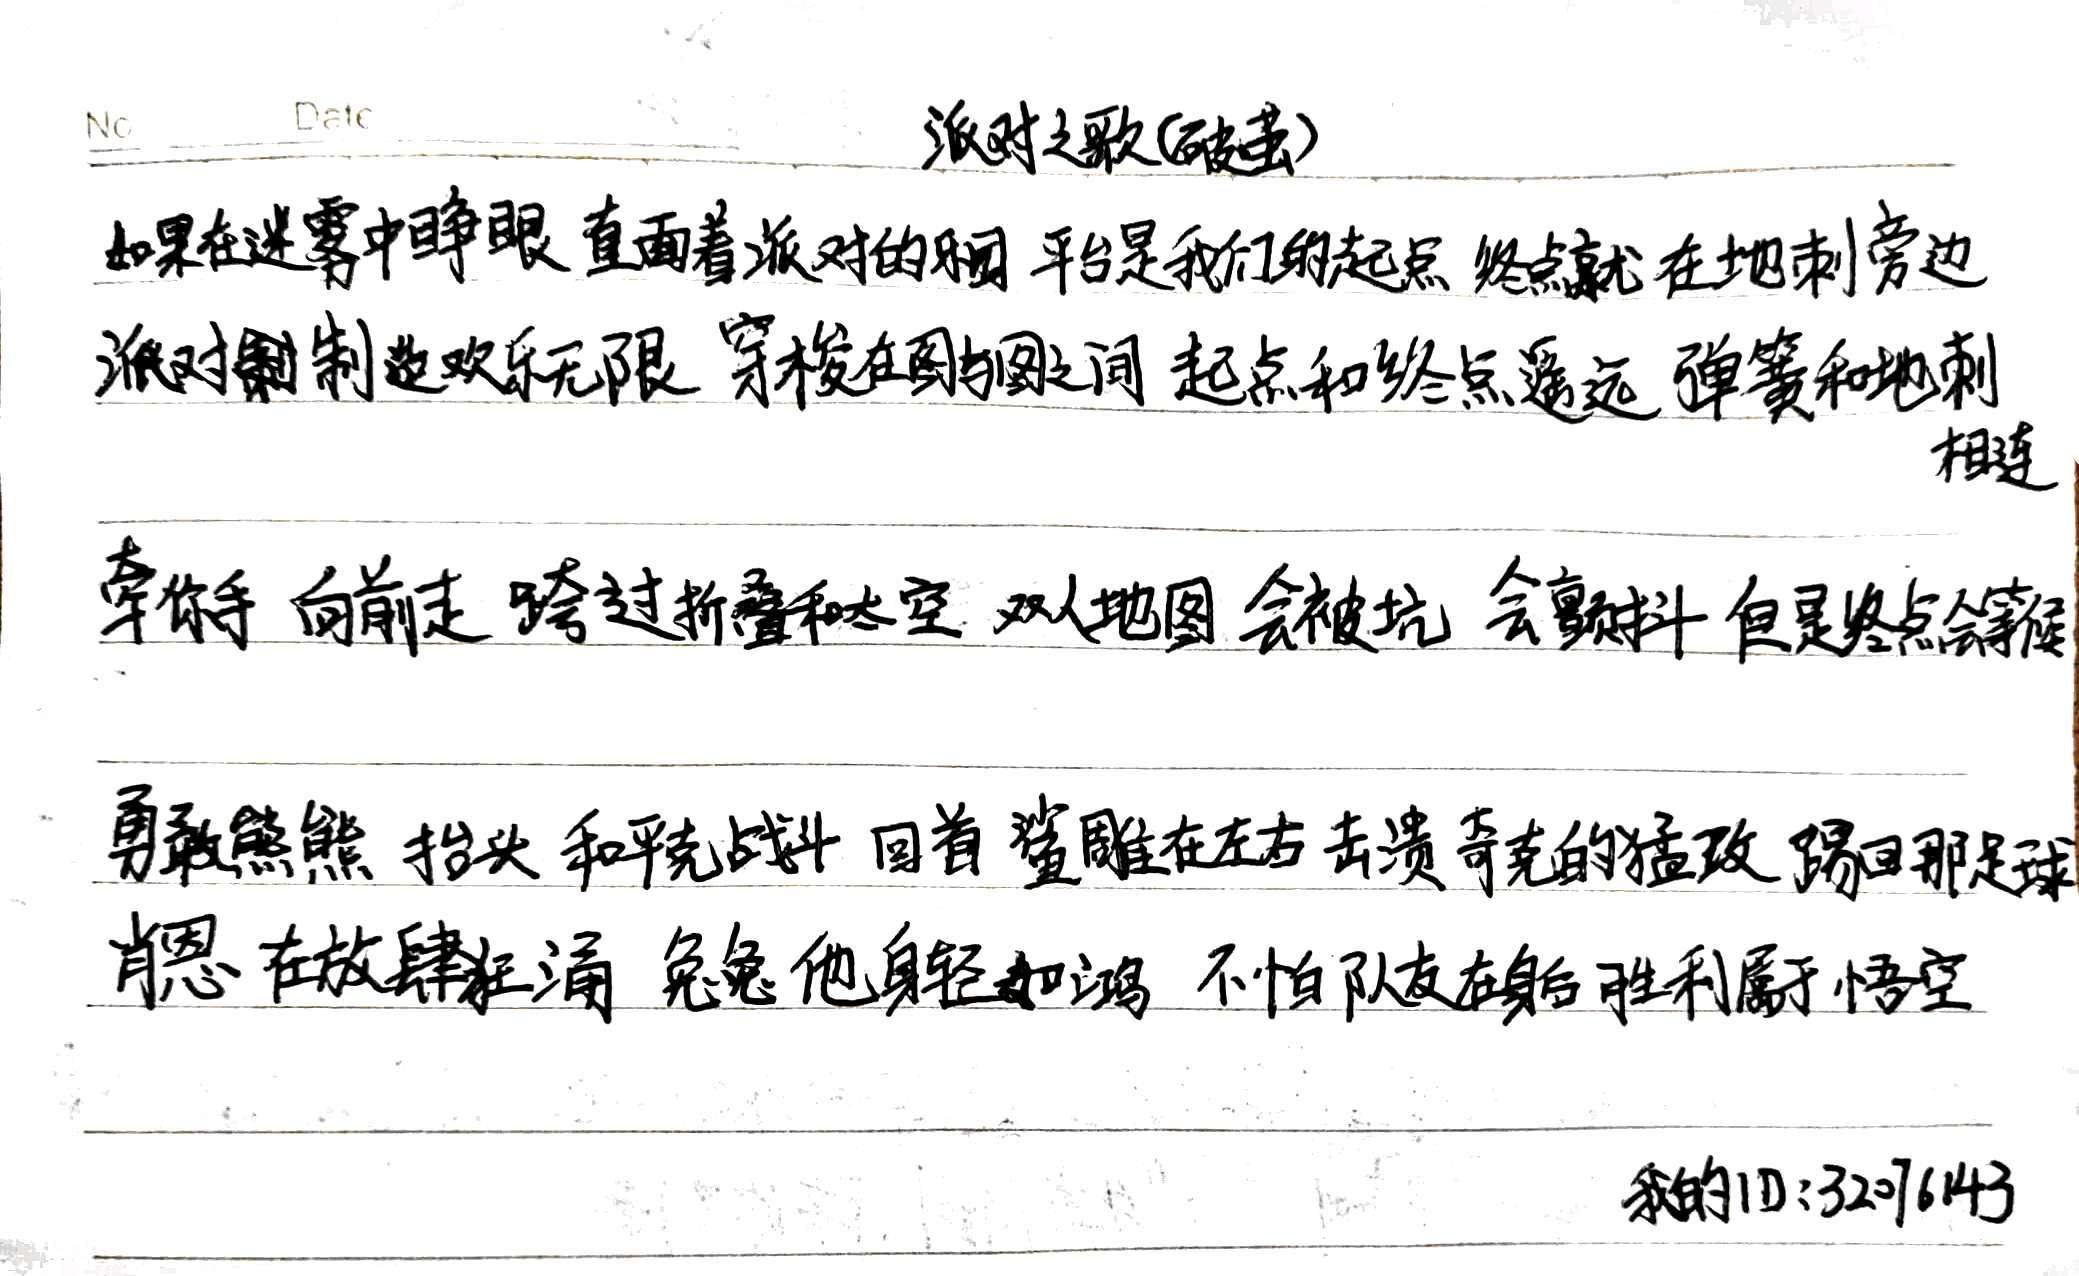 No    Date
派对之歌(破茧)
如果在迷雾中睁眼 直面着派对的乐园 平台是我们的起点 终点就在地刺旁边
派对制造欢乐无限 穿梭在图与图之间 起点和终点遥远 弹簧和地刺
相连
牵你手 向前走 跨过折叠和太空 双人地图 会被坑 会颤抖 但是终点会等候
勇敢熊熊 抬头 和平克战斗 回首 鲨雕在左右 击溃奇克的猛攻 踢回那足球
肖恩 在放肆狂涌 兔兔 他身轻如鸿 不怕队友在身后 胜利属于悟空
我的ID:32076143